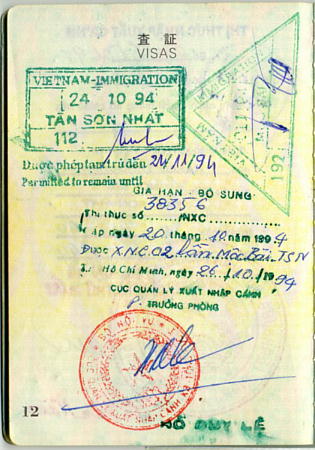 査 証
VISAS
VIETNAM-IMMIGRATION
24 10 94
TÂN SƠN NHẤT
112
VIETNAM
192
Được phép tạm trú đến 24/11/94
Permitted to remain until
GIA HẠN - BỔ SUNG
38356
Thị thực số /NXC
Cấp ngày 20 tháng 10 năm 1994
Được X.N.C. 02 lần Mộc Bài TSN
Hồ Chí Minh, ngày 26/10/1994
CỤC QUẢN LÝ XUẤT NHẬP CẢNH
P. TRƯỞNG PHÒNG
BỘ NỘI VỤ
XUẤT NHẬP CẢNH
12